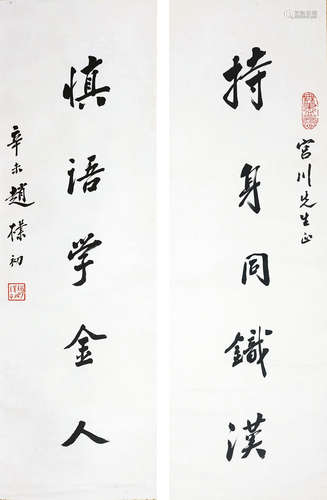 持身同鐵漢
宮川先生正
慎語学金人
辛未趙樸初